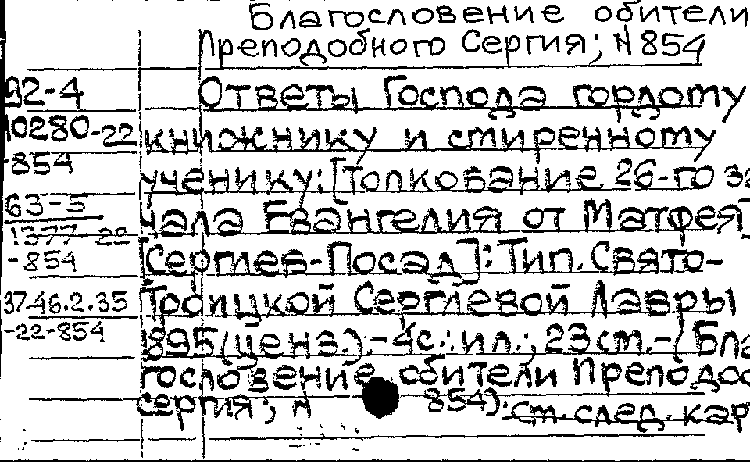 Благословение обители
Преподобного Сергия; N 854
92-4
Ответы Господа гордому
10280-22
книжнику и смиренному
-854
ученику: [Толкование 26-го за
63-5
чала Евангелия от Матфея]
1377-22
-854
[Сергиев-Посад]: Тип. Свято-
3746.2.35
Троицкой Сергиевой Лавры
-22-854
1895 (ценз.).-4с.: ил.; 23см.-(Бла
гословение обители Преподоб
Сергия; N 854). См. след. кар